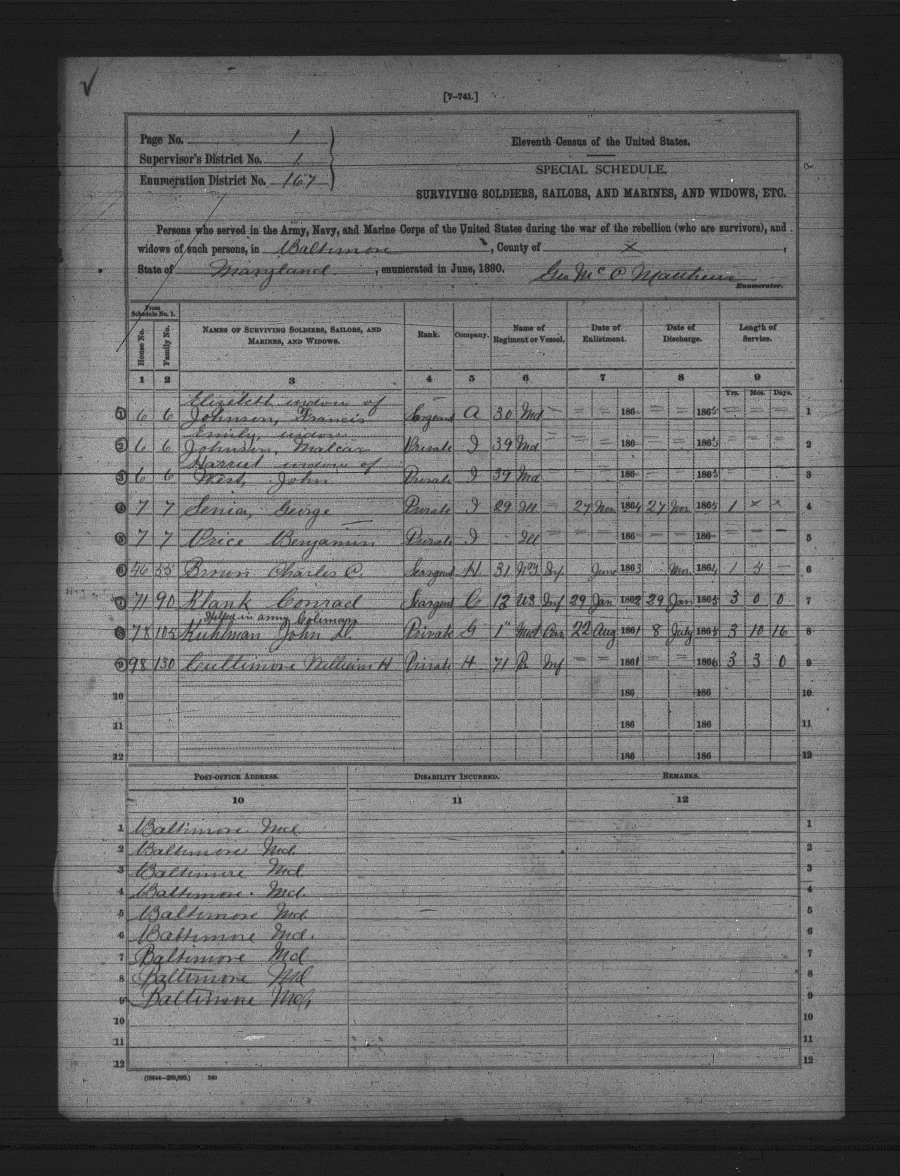 [7-741.]
Page No. 1
Supervisor's District No. 1
Enumeration District No. 167
Eleventh Census of the United States.
SPECIAL SCHEDULE.
SURVIVING SOLDIERS, SAILORS, AND MARINES, AND WIDOWS, ETC.
Persons who served in the Army, Navy, and Marine Corps of the United States during the war of the rebellion (who are survivors), and
widows of such persons, in Baltimore, County of X,
State of Maryland, enumerated in June, 1890. Geo Mc C Matthews
Enumerator.
From Schedule No. 1.
House No. Family No. NAMES OF SURVIVING SOLDIERS, SAILORS, AND MARINES, AND WIDOWS. Rank. Company. Name of Regiment or Vessel. Date of Enlistment. Date of Discharge. Length of Service.
1 2 3 4 5 6 7 8 9
Yrs. Mos. Days.
Elizabeth widow of
1 6 6 Johnson, Francis Sargent A 30 Md — — — 186 — — 1865 — — — 1
Emily, widow
2 6 6 Johnson, Private I 39 Md — — 186 — — 1865 — — — 2
Harriet widow of
3 6 6 West, John Private I 39 Md — — 186 — — 1865 — — — 3
4 7 7 George Private I 29 Ill — 27 Nov 1864 27 Nov 1865 1 x x 4
5 7 7 Price Benjamin Private I — Ill — — 186 — — 186 — — — 5
6 46 55 Brown Charles C. Seargent H 31 Inf June 1863 1864 1 6
7 71 90 Klank Conrad Seargent C 13 US Inf 29 Jan 1862 29 Jan 1865 3 0 0 7
in army Coleman
8 78 105 Kuhlman John D. Private G 1" Md Cav 22 Aug 1861 8 July 1865 3 10 16 8
9 98 130 Cultimore William H Private H 71 Pa Inf — — 1861 — — 186 3 3 0 9
10 186 186 10
11 186 186 11
12 186 186 12
POST-OFFICE ADDRESS. DISABILITY INCURRED. REMARKS.
10 11 12
1 Baltimore Md 1
2 Baltimore Md 2
3 Baltimore Md 3
4 Baltimore Md. 4
5 Baltimore Md. 5
6 Baltimore Md. 6
7 Baltimore Md 7
8 Baltimore Md 8
9 Baltimore Md, 9
10 10
11 11
12 12